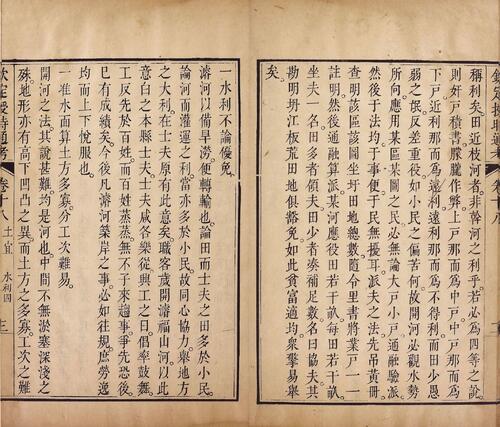 稱利矣田近枝河者非幹河之利乎若必爲四等之說
則奸戶積書朦朧作弊上戶那而爲中戶中戶那而爲
下戶近利那而爲遠利遠利那而爲不得利而田少愚
弱之氓反差重役如小民之偏苦何故開河必觀水勢
所向應用某區某圖之民必無論大戶小戶通融驗派
然後于法均于事便于民無擾耳派夫之法先吊黃冊
查明該區該圖坐圩田地總數隨令里書將業戶一一
註明然後通融算派某河應役田若干畝每田若干畝
坐夫一名田多者領夫田少者湊補足數名曰協夫其
勘明坍江板荒田地俱豁免如此貧富適均衆擎易舉
矣
一水利不論優免
濬河以備旱澇便轉輸也論田而士夫之田多於小民
論河而灌運之利當亦多於小民故同心協力舉地方
之大利在士夫原有此意矣職客歲開濬福山河以此
意白之本縣士夫士夫咸各樂從興工之日倡率鼓舞
工反先於百姓而百姓蒸蒸無不子來趨事爭先恐後
已有成績矣今後凡濬河築岸之事必如往規庶勞逸
均而上下悅服也
一准水而算土方多寡分工次難易
開河之法其說甚難均是河也中間不無淤塞深淺之
殊地形亦有高下凹凸之異而土方之多寡工次之難
欽定授時通考 卷十八 土宜 水利四 三